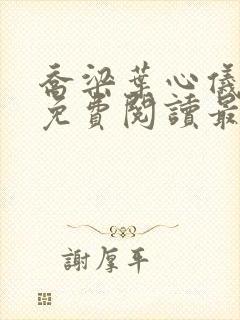 喬梁葉心儀
免費閱讀最
謝厚平